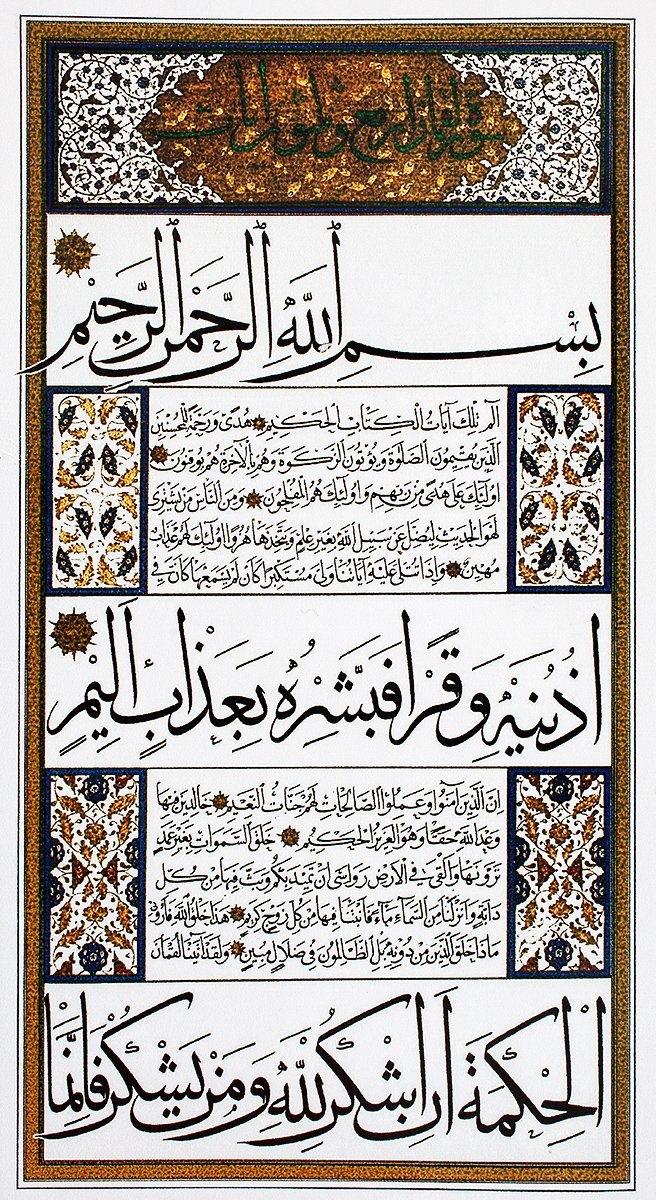 سورة لقمان اربع وثلثون ايات
بِسْمِ اللّٰهِ الرَّحْمٰنِ الرَّحيمِ
الم تِلْكَ آياتُ الْكِتابِ الْحَكيمِ هُدًى وَرَحْمَةً لِلْمُحْسِنينَ
اَلَّذينَ يُقيمُونَ الصَّلوةَ وَيُؤْتُونَ الزَّكوةَ وَهُمْ بِالْآخِرَةِ هُمْ يُوقِنُونَ
اُولئِكَ عَلى هُدًى مِنْ رَبِّهِمْ وَاُولئِكَ هُمُ الْمُفْلِحُونَ وَمِنَ النّاسِ مَنْ يَشْتَرى
لَهْوَ الْحَديثِ لِيُضِلَّ عَنْ سَبيلِ اللّٰهِ بِغَيْرِ عِلْمٍ وَيَتَّخِذَها هُزُوًا اُولئِكَ لَهُمْ عَذابٌ
مُهينٌ وَاِذا تُتْلى عَلَيْهِ آياتُنا وَلّى مُسْتَكْبِرًا كَاَنْ لَمْ يَسْمَعْها كَاَنَّ في
اُذُنَيْهِ وَقْرًا فَبَشِّرْهُ بِعَذابٍ اَليمٍ
اِنَّ الَّذينَ آمَنُوا وَعَمِلُوا الصّالِحاتِ لَهُمْ جَنّاتُ النَّعيمِ خالِدينَ فيها
وَعْدَ اللّٰهِ حَقًّا وَهُوَ الْعَزيزُ الْحَكيمُ خَلَقَ السَّمواتِ بِغَيْرِ عَمَدٍ
تَرَوْنَها وَاَلْقى فِي الْاَرْضِ رَواسِيَ اَنْ تَميدَ بِكُمْ وَبَثَّ فيها مِنْ كُلِّ
دابَّةٍ وَاَنْزَلْنا مِنَ السَّماءِ ماءً فَاَنْبَتْنا فيها مِنْ كُلِّ زَوْجٍ كَريمٍ هذا خَلْقُ اللّٰهِ فَاَرُوني
ماذا خَلَقَ الَّذينَ مِنْ دُونِهِ بَلِ الظّالِمُونَ في ضَلالٍ مُبينٍ وَلَقَدْ آتَيْنا لُقْمانَ
الْحِكْمَةَ اَنِ اشْكُرْ لِلّٰهِ وَمَنْ يَشْكُرْ فَاِنَّما